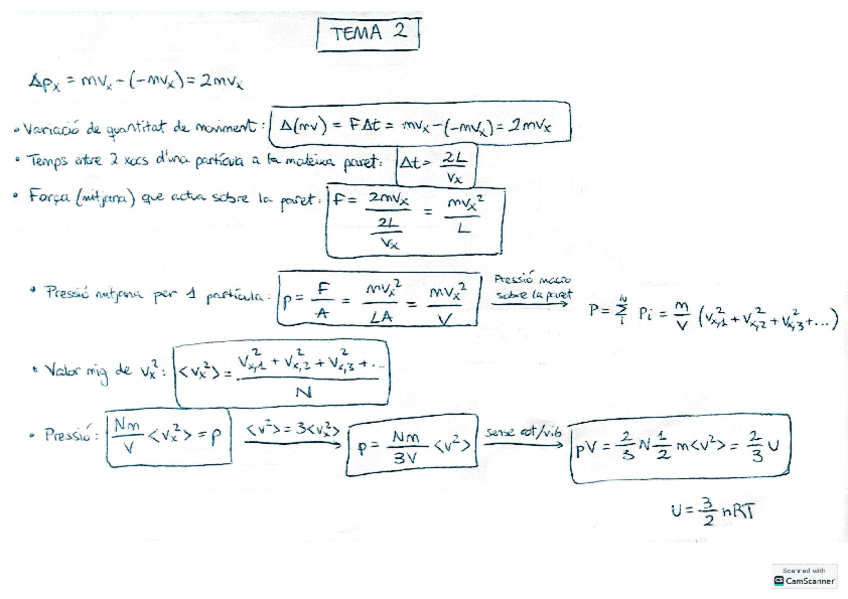 TEMA 2
Δpₓ = mvₓ - (-mvₓ) = 2mvₓ
• Variació de quantitat de moviment: Δ(mv) = FΔt = mvₓ - (-mvₓ) = 2mvₓ
• Temps entre 2 xocs d'una partícula a la mateixa paret: Δt = 2L/vₓ
• Força (mitjana) que actua sobre la paret: F = 2mvₓ/(2L/vₓ) = mvₓ²/L
• Pressió mitjana per 1 partícula: p = F/A = mvₓ²/LA = mvₓ²/V
Pressió macro sobre la paret → P = Σᵢᴺ Pi = m/V (vₓ,₁² + vₓ,₂² + vₓ,₃² + ...)
• Valor mig de vₓ²: <vₓ²> = (vₓ,₁² + vₓ,₂² + vₓ,₃² + ...)/N
• Pressió: Nm/V <vₓ²> = p → <v²> = 3<vₓ²> → p = Nm/3V <v²> → sense rot/vib → pV = 2/3 N 1/2 m<v²> = 2/3 U
U = 3/2 nRT
Scanned with
CamScanner